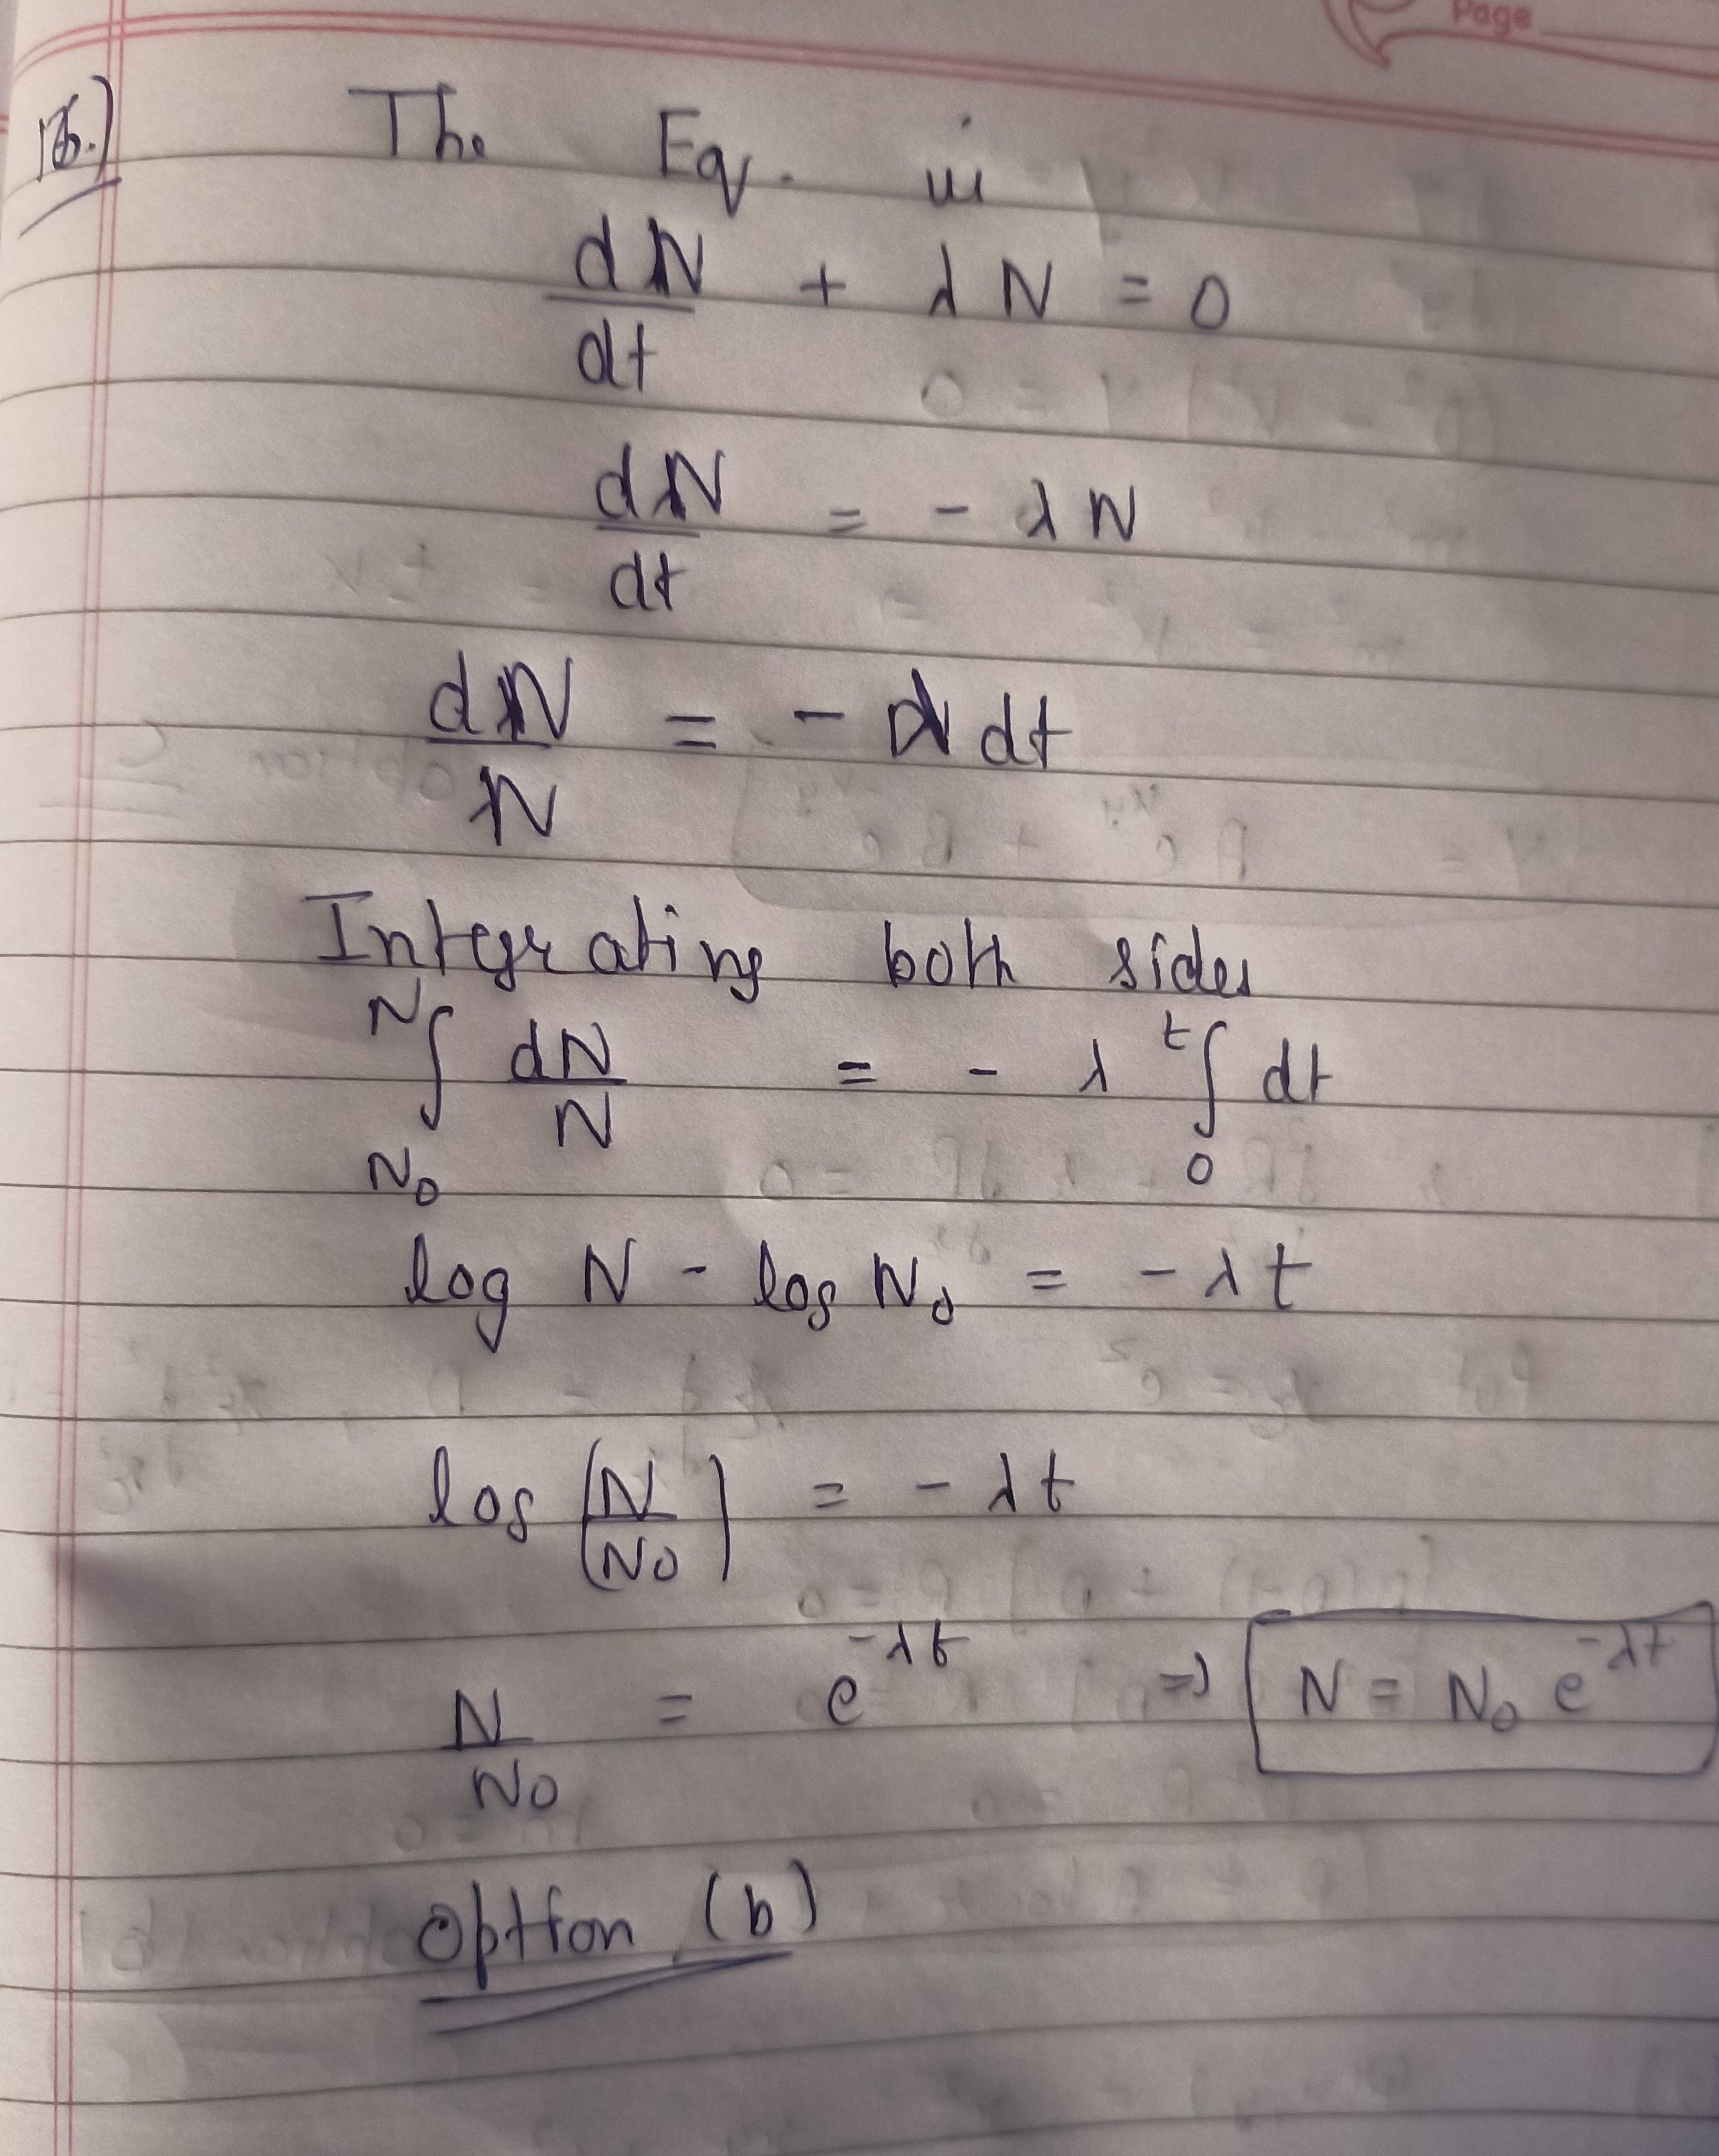 Page
16.) The Eq. is
dN/dt + λN = 0
dN/dt = - λN
dN/N = - λ dt
Integrating both sides
N∫N₀ dN/N = - λ t∫0 dt
log N - log N₀ = - λt
log (N/N₀) = - λt
N/N₀ = e^-λt => N = N₀ e^-λt
Option (b)